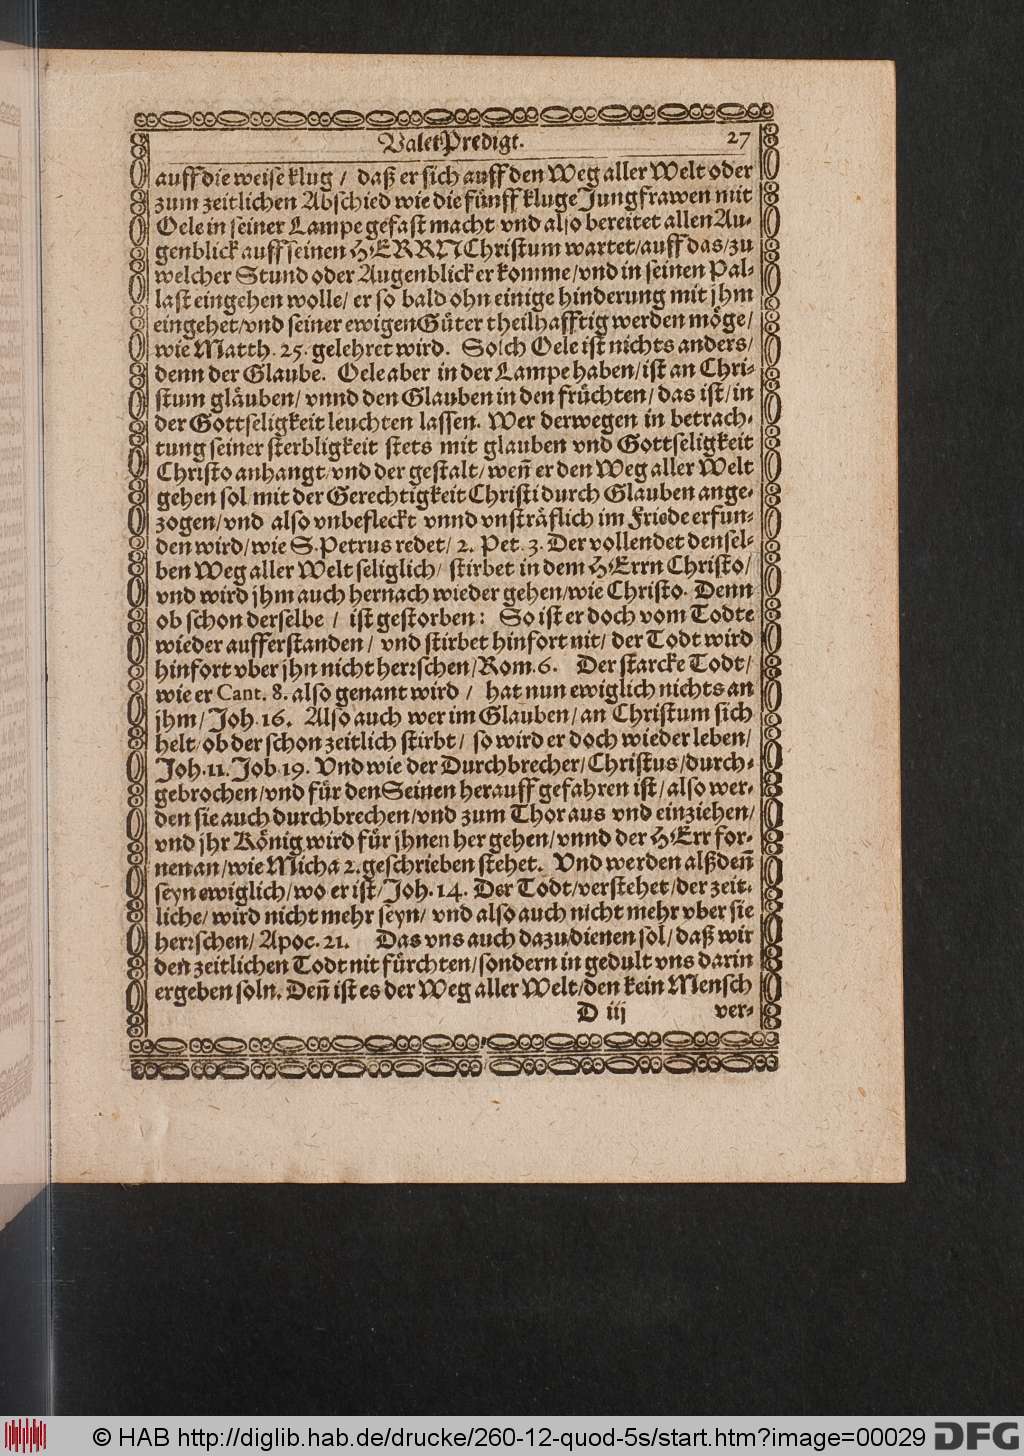 ValetPredigt. 27
auff die weise klug / daß er sich auff den Weg aller Welt oder
zum zeitlichen Abschied wie die fünff kluge Jungfrawen mit
Oele in seiner Lampe gefast macht vnd also bereitet allen Au-
genblick auff seinen HERRN Christum wartet/auff das/zu
welcher Stund oder Augenblick er komme/vnd in seinen Pal-
last eingehen wolle/ er so bald ohn einige hinderung mit jhm
eingehet/vnd seiner ewigen Güter theilhafftig werden möge/
wie Matth. 25. gelehret wird. Solch Oele ist nichts anders/
denn der Glaube. Oele aber in der Lampe haben/ist an Chri-
stum gläuben/ vnnd den Glauben in den früchten/das ist/in
der Gottseligkeit leuchten lassen. Wer derwegen in betrach-
tung seiner sterbligkeit stets mit glauben vnd Gottseligkeit
Christo anhangt/vnd der gestalt/weñ er den Weg aller Welt
gehen sol/mit der Gerechtigkeit Christi durch Glauben ange-
zogen/vnd also vnbefleckt vnnd vnsträflich im Friede erfun-
den wird/wie S. Petrus redet/ 2. Pet. 3. Der vollendet densel-
ben Weg aller Welt seliglich/ stirbet in dem HErrn Christo/
vnd wird jhm auch hernach wieder gehen/wie Christo. Denn
ob schon derselbe / ist gestorben: So ist er doch vom Todte
wieder aufferstanden/ vnd stirbet hinfort nit/ der Todt wird
hinfort vber jhn nicht herrschen/Rom. 6. Der starcke Todt/
wie er Cant. 8. also genant wird / hat nun ewiglich nichts an
jhm/Joh. 16. Also auch wer im Glauben/an Christum sich
helt/ob der schon zeitlich stirbt/ so wird er doch wieder leben/
Joh. 11. Job. 19. Vnd wie der Durchbrecher/Christus/durch-
gebrochen/vnd für den Seinen herauff gefahren ist/also wer-
den sie auch durchbrechen/vnd zum Thor aus vnd einziehen/
vnd jhr König wird für jhnen her gehen/vnnd der HErr for-
nen an/wie Micha 2. geschrieben stehet. Vnd werden alßdeñ
seyn ewiglich/wo er ist/Joh. 14. Der Todt/verstehet/der zeit-
liche/ wird nicht mehr seyn/ vnd also auch nicht mehr vber sie
herrschen/ Apoc. 21. Das vns auch dazu/dienen sol/daß wir
den zeitlichen Todt nit fürchten/sondern in gedult vns darin
ergeben soln. Deñ ist es der Weg aller Welt/den kein Mensch
D iij ver-
© HAB http://diglib.hab.de/drucke/260-12-quod-5s/start.htm?image=00029 DFG